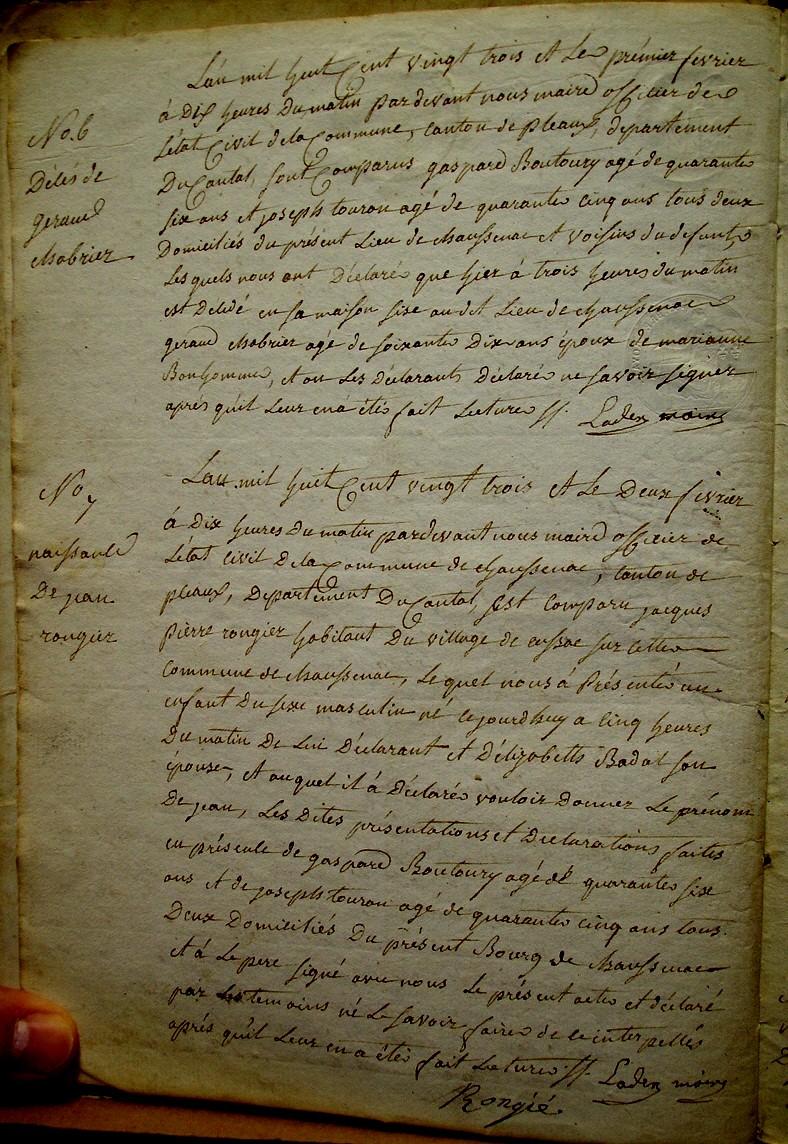 No. 6
Décès de
geraud
chabrier
L'an mil huit Cent vingt trois et Le premier fevrier
à Dix heures Du matin par devant nous maire officier de
L'état Civil de la Commune, canton de pleaux, departement
Du Cantal, sont Comparus gaspard Boutoury agé de quarante
six ans et joseph touron agé de quarante cinq ans tous deux
Domiciliés du présent Lieu de chaussenac et voisins du defunt
Les quels nous ont Déclaré que hier à trois heures du matin
est Décédé en sa maison sise au dit Lieu de chaussenac
geraud chabrier agé de soixante Dix ans époux de marianne
Bonhomme, et ont Les Déclarants Déclaré ne savoir signer
après qu'il Leur en a été fait Lecture //. Laden maire
No 7
naissance
De jean
rongier
L'an mil huit Cent vingt trois et Le Deux fevrier
à Dix heures Du matin pardevant nous maire officier de
L'état civil De la Commune de chaussenac, canton de
pleaux, Departement Du Cantal, est Comparu jacques
pierre rongier habitant Du village de cussac sur cette
Commune de chaussenac, Le quel nous à Présenté un
enfant Du sexe masculin né cejourdhuy a cinq heures
Du matin De Lui Déclarant et D'élizabeth Badal son
épouse, et auquel il à Déclaré vouloir Donner Le prénom
De jean, Les Dites présentations et Declarations faites
en présence de gaspard Boutoury agé de quarante six
ans et de joseph touron agé de quarante cinq ans tous
Deux Domiciliés Du présent Bourg de chaussenac
et à Le pere signé avec nous Le présent acte et déclaré
par Les temoins né Le savoir faire de ce interpellés
après qu'il Leur en a été fait Lecture //. Laden maire
Rongié